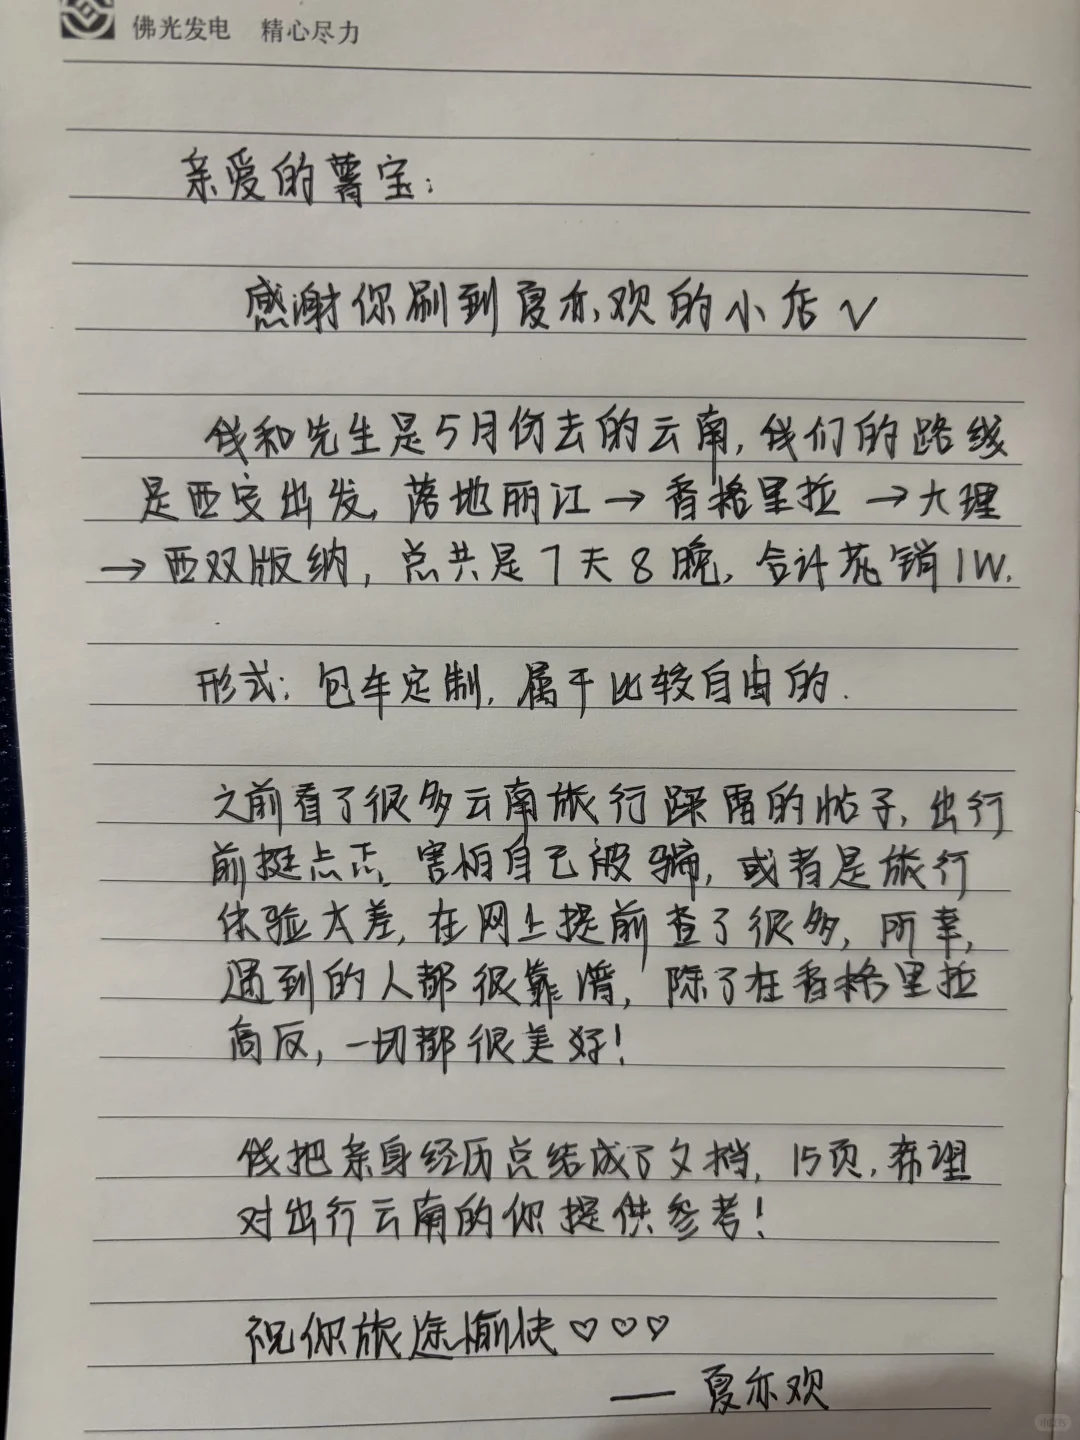 佛光发电 精心尽力
亲爱的薯宝:
感谢你刷到夏亦欢的小店√
我和先生是5月份去的云南,我们的路线
是西安出发,落地丽江→香格里拉→大理
→西双版纳,总共是7天8晚,合计花销1W.
形式:包车定制,属于比较自由的.
之前看了很多云南旅行踩雷的帖子,出行
前挺忐忑,害怕自己被骗,或者是旅行
体验太差,在网上提前查了很多,所幸,
遇到的人都很靠谱,除了在香格里拉
高反,一切都很美好!
我把亲身经历总结成了文档,15页,希望
对出行云南的你提供参考!
祝你旅途愉快♡♡♡
——夏亦欢
小红书